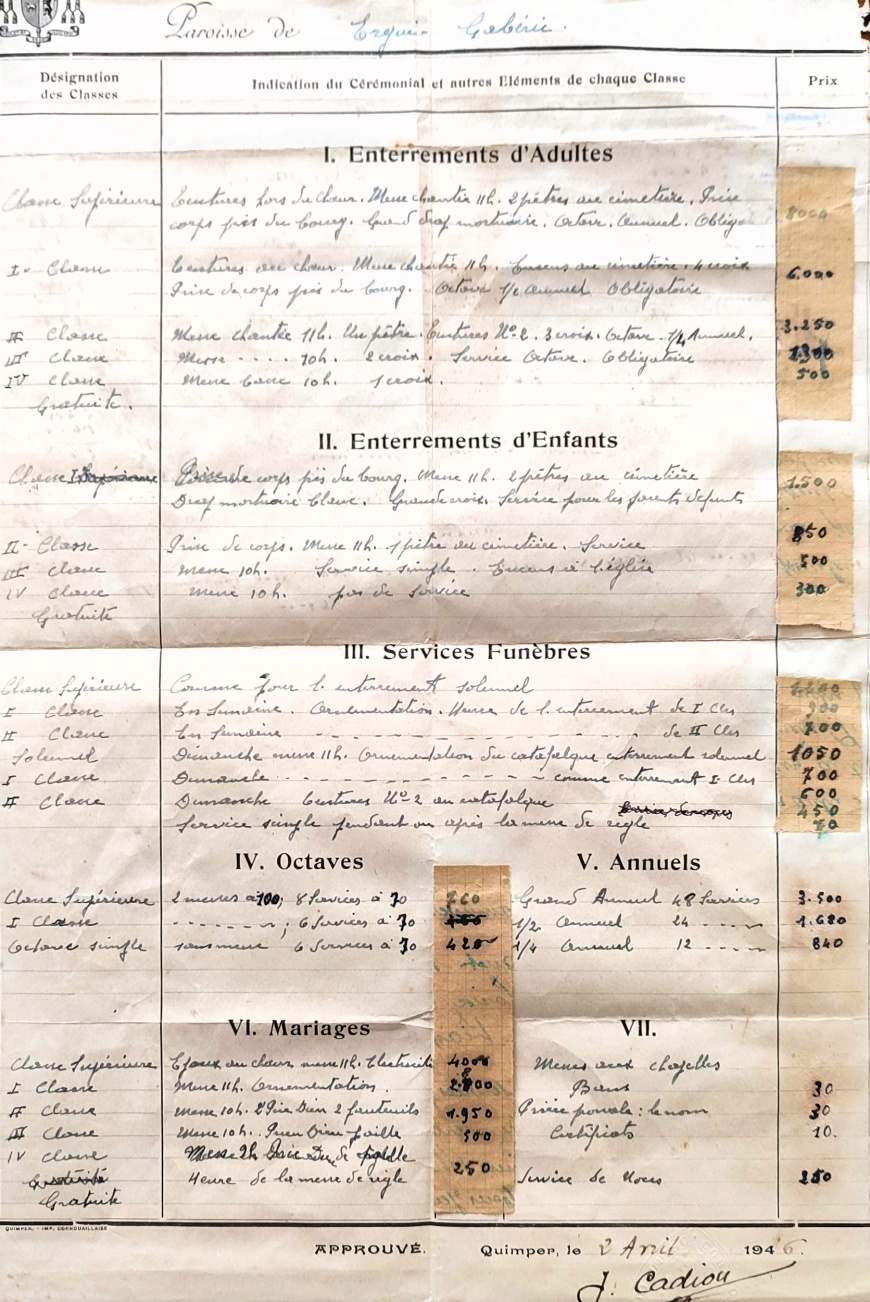 Paroisse de Ergué-Gabéric.
Désignation des Classes
Indication du Cérémonial et autres Eléments de chaque Classe
Prix
I. Enterrements d'Adultes
Classe Supérieure Tentures hors du chœur. Messe chantée 11h. 2 pêtres au cimetière. Prise 8000
corps près du bourg. Grand drap mortuaire. Octave. Annuel. Obligo
I. Classe Tentures au chœur. Messe chantée 11h. Encens au cimetière. 4 croix 6.000
Prise de corps près du bourg. Octave 1/2 Annuel Obligatoire
II Classe Messe chantée 11h. Un pêtre. Tentures No 2. 3 croix. Octave. 1/4 Annuel. 3.250
III Classe Messe .... 10h. 2 croix. Service Octave. Obligatoire 1300
IV Classe Messe basse 10h. 1 croix. 500
Gratuite.
II. Enterrements d'Enfants
Classe I Prise de corps près du bourg. Messe 11h. 2 pêtres au cimetière 1.500
Drap mortuaire blanc. Grande croix. Service pour les parents défunts
II - Classe Prise de corps. Messe 11h. 1 pêtre au cimetière. Service 850
III Classe Messe 10h. Service simple. Encens à l'église 500
IV Classe Messe 10h. pas de service 300
Gratuite
III. Services Funèbres
Classe Supérieure Comme pour l'enterrement solennel
I Classe En Semaine. Ornementation. Messe de l'enterrement de I Cles 900
II Classe En Semaine - - - - de II Cles 700
Solennel Dimanche messe 11h. Ornementation du catafalque enterrement solennel 1050
I Classe Dimanche - - - - comme enterrement I Cles 700
II Classe Dimanche Tentures No 2 au catafalque 600
450
Service simple pendant ou après la messe de règle 70
IV. Octaves
Classe Supérieure 2 messes à 100; 8 Services à 70 760
I Classe - - - - ; 6 Services à 70
Octave simple sans messe 6 Services à 70 420
V. Annuels
Grand Annuel 48 Services 3.500
1/2 Annuel 24 - - - - 1.680
1/4 Annuel 12 - - - - 840
VI. Mariages
Classe Supérieure Epoux au chœur messe 11h. Electricité 4000
I Classe Messe 11h. Ornementation. 2.800
II Classe Messe 10h. 2 Prie Dieu 2 fauteuils 1.950
III Classe Messe 10h. Prie Dieu paille 500
IV Classe
Heure de la messe de règle 250
Gratuite
VII.
Messes aux chapelles
Bans 30
Prière prônale: le nom 30
Certificats 10.
Service de Noces 250
QUIMPER. - IMP. CORNOUAILLAISE
APPROUVÉ. Quimper, le 2 Avril 1946.
J. Cadiou